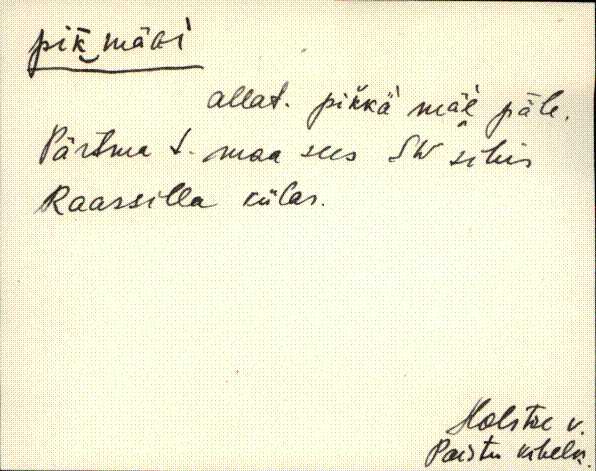 pik mägi
allat. pikkä mäe päle.
Pärtma t. maa sees SW sihis
Raassilla külas.
Holstre v.
Paistu kihelk.